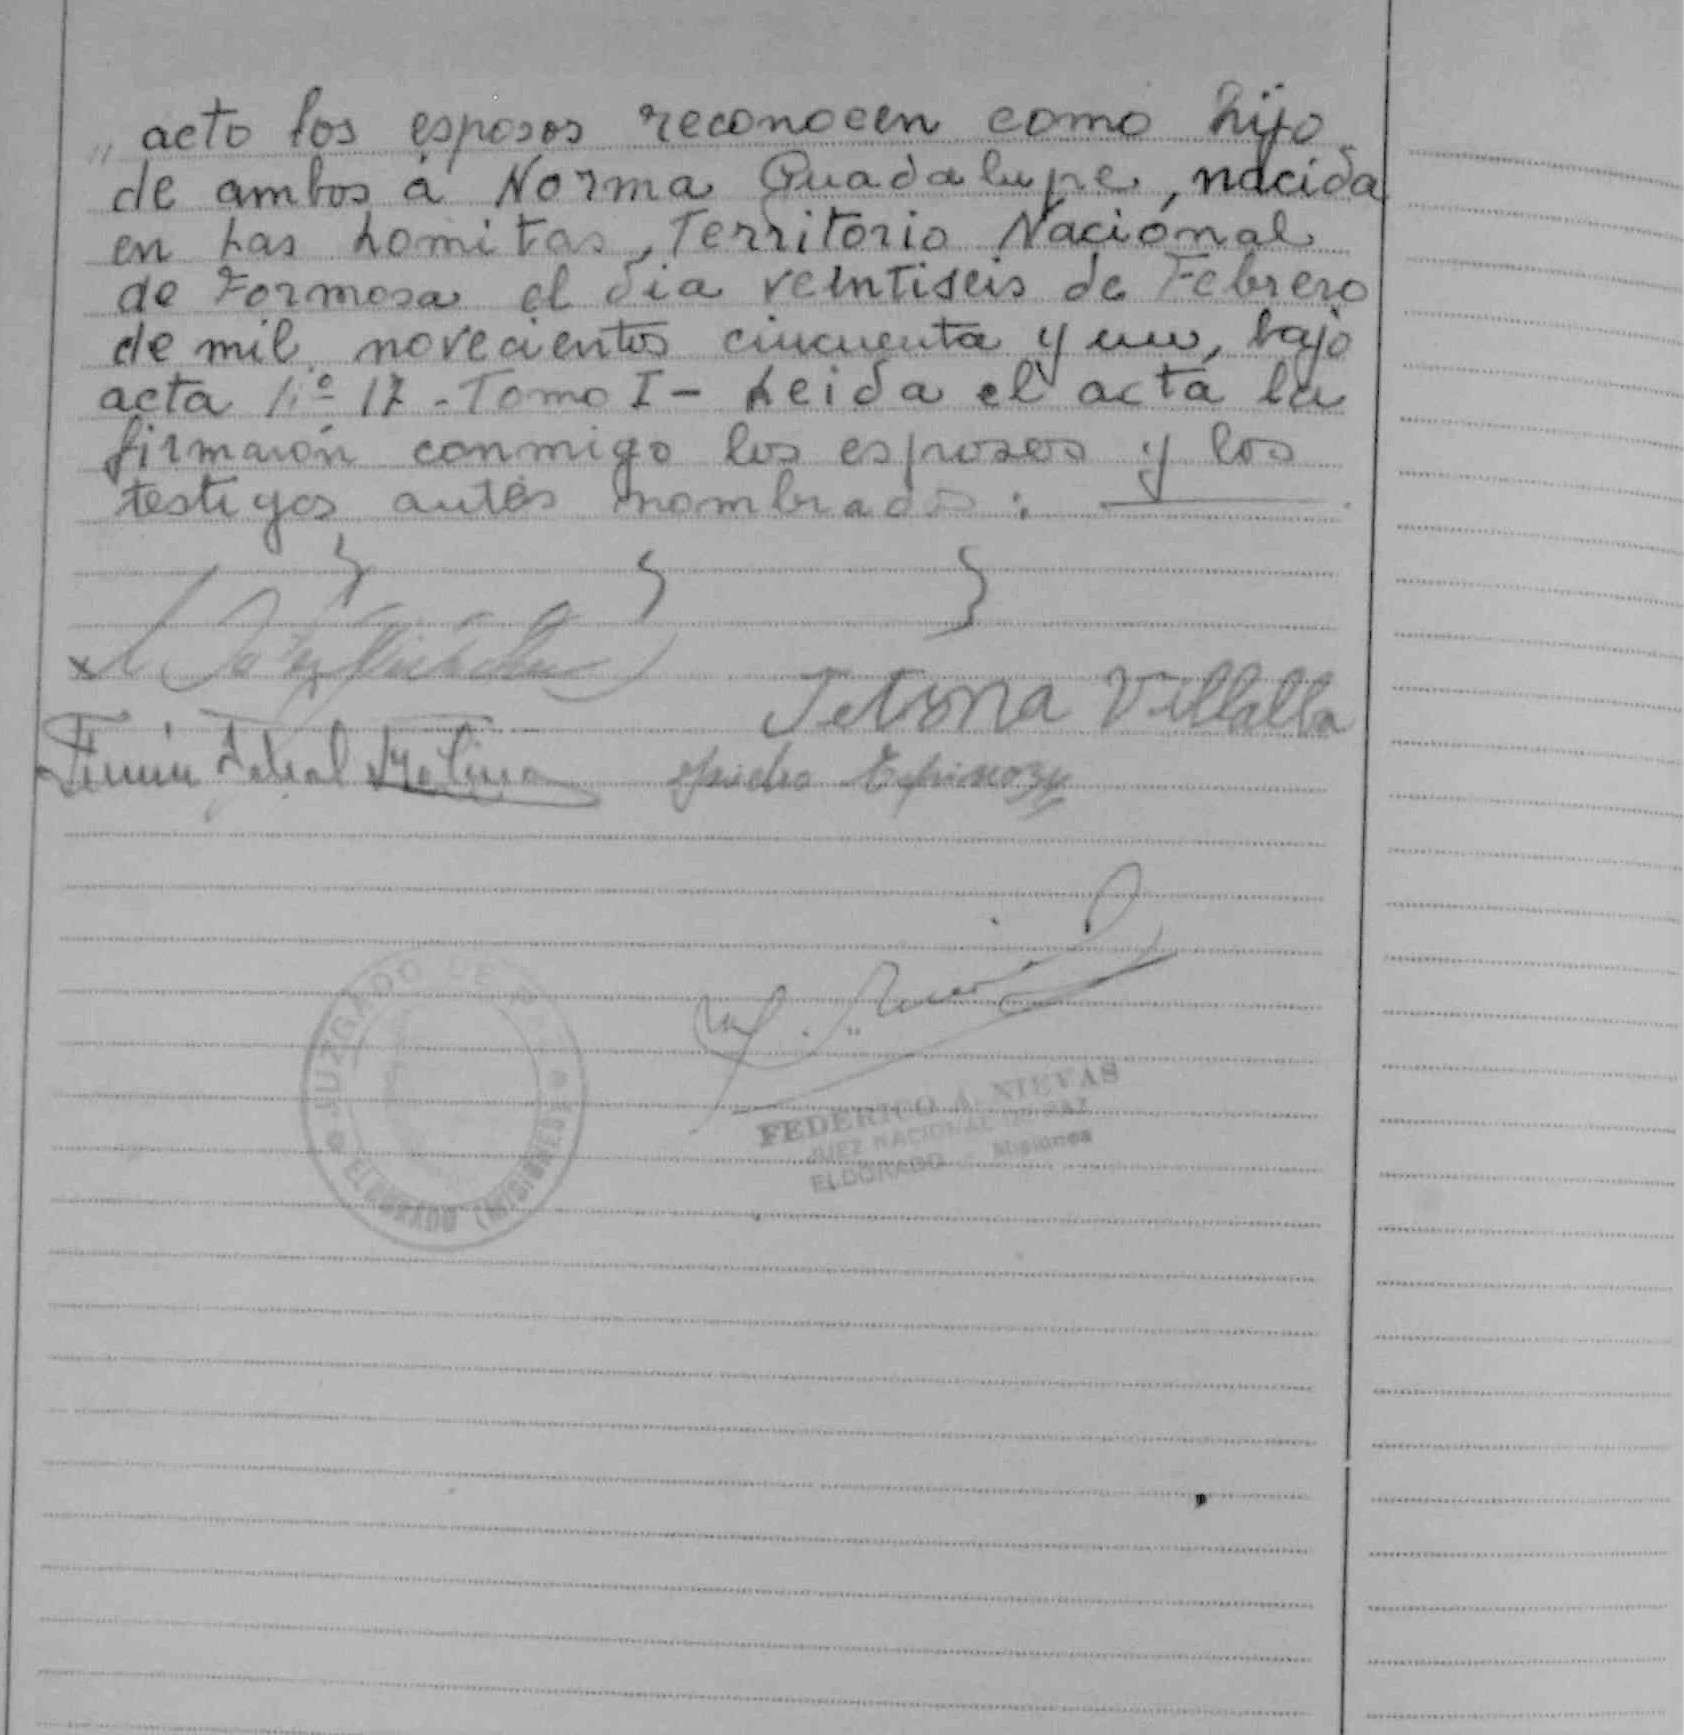 ,, acto los esposos reconocen como hijo
de ambos á Norma Guadalupe, nacida
en Las Lomitas, Territorio Naciónal
de Formosa el dia veintiseis de Febrero
de mil novecientos cincuenta y uno, bajo
acta Nº 17 - Tomo I - Leida el acta la
firmarón conmigo los esposos y los
testigos antes nombrados :
Villalba
Molina Espinoza
JUZGADO DE PAZ
EL DORADO (MISIONES)
FEDERICO A. NIEVAS
JUEZ NACIONAL DE PAZ
ELDORADO - Misiones